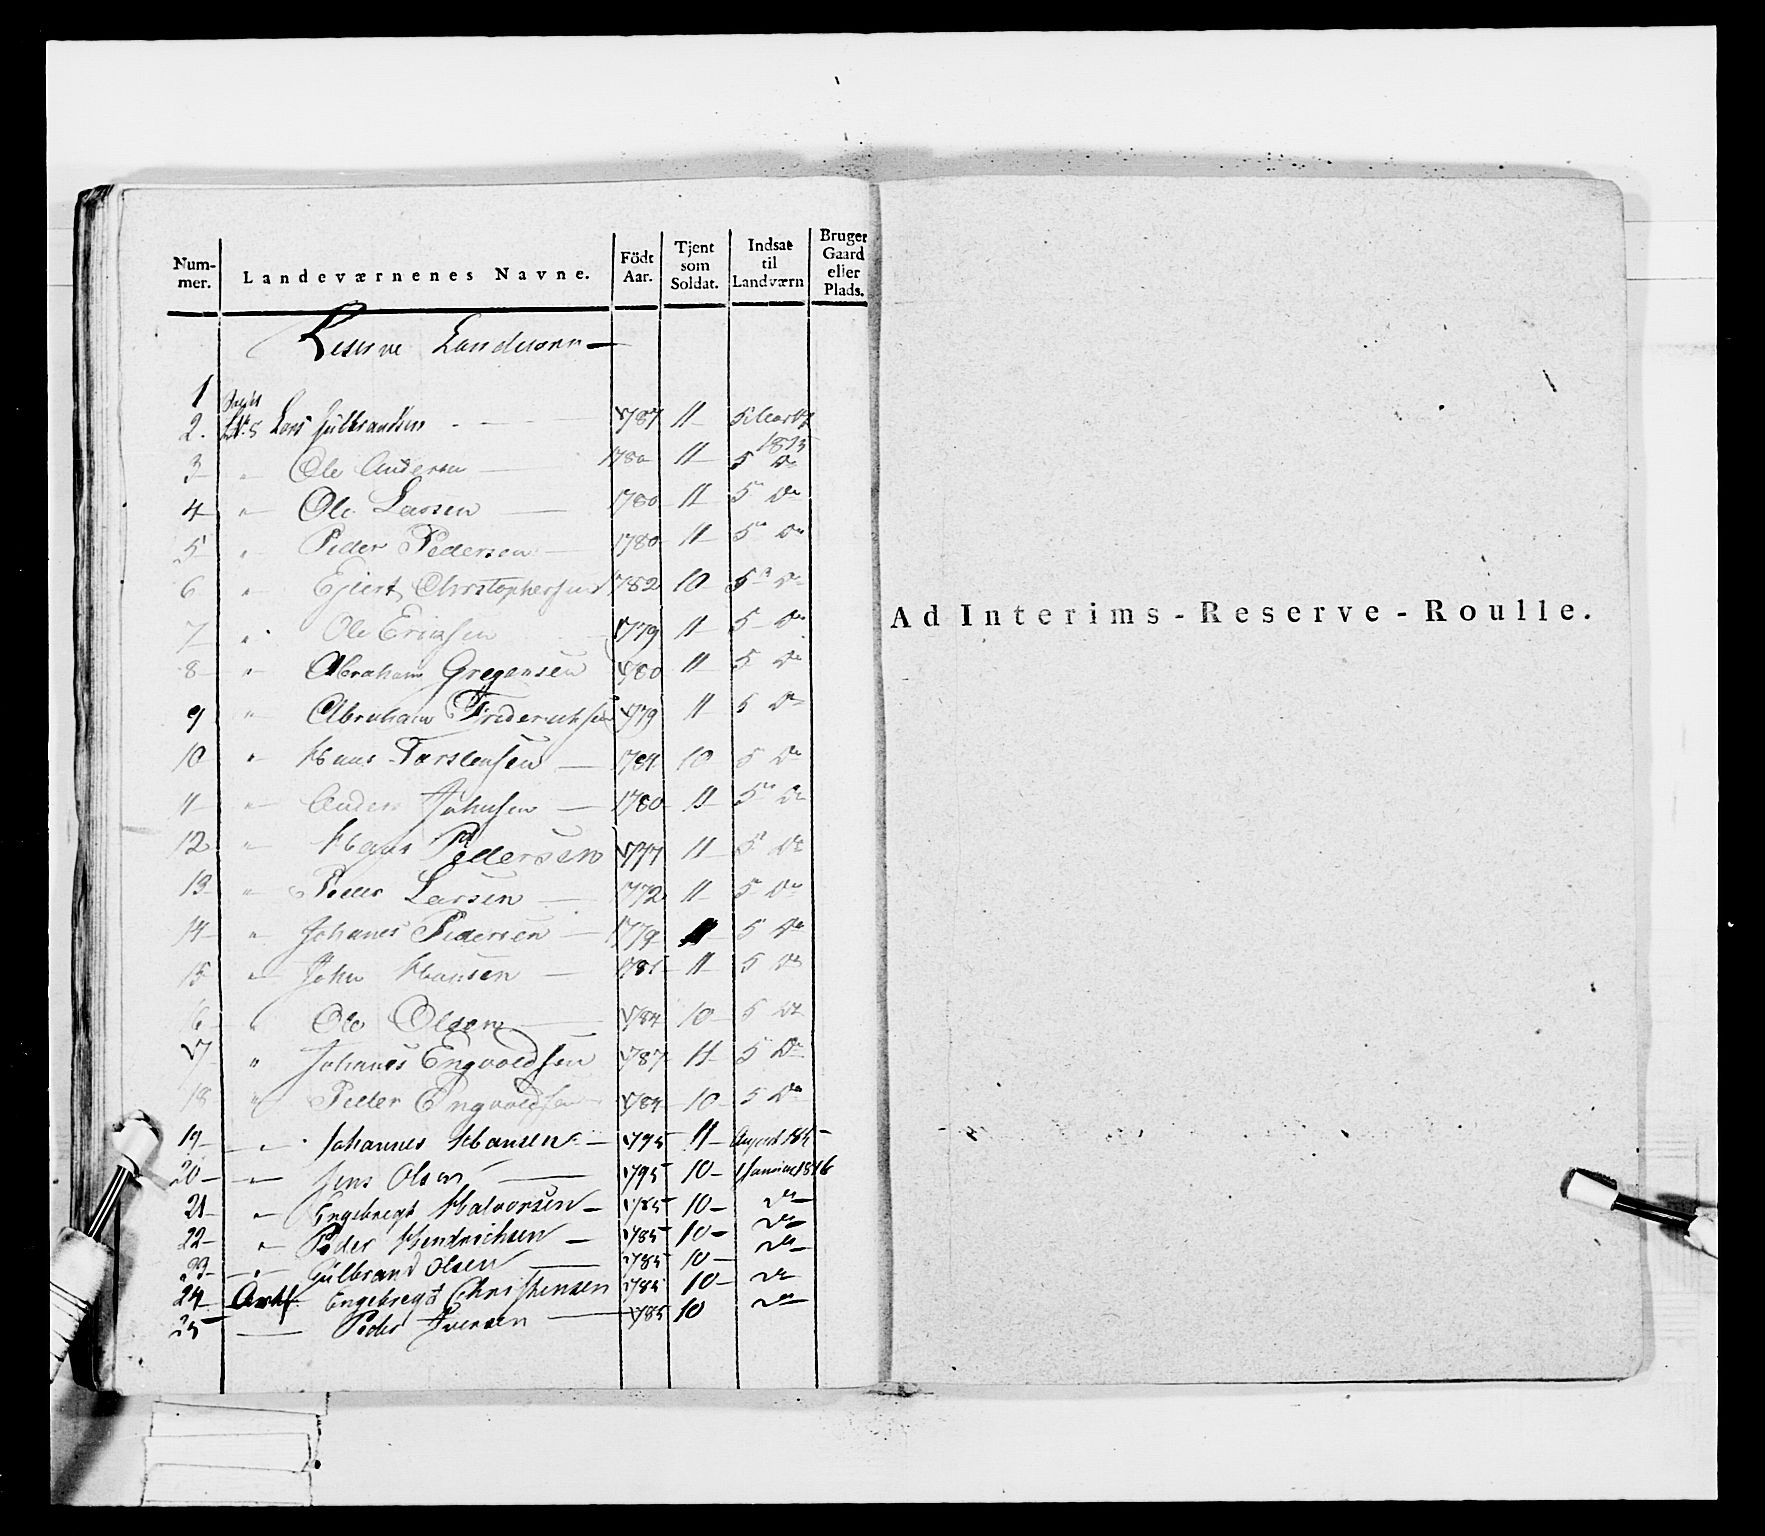 Num-mer. Landeværnenes Navne. Födt Aar. Tjent som Soldat. Indsat til Landværn Bruger Gaard eller Plads.
Reserve Landværn
1
2. Lars Gulbrandsen 1787 11 5 Marti 1815
3 " Ole Andersen 1780 11 5 do
4 " Ole Larsen 1780 11 5 do
5 " Peder Pedersen 1780 11 5 do
6 " Ejlert Christophersen 1782 10 5 do
7 " Ole Ericksen 1779 11 5 do
8 " Abraham Gregersen 1780 11 5 do
9 " Abraham Friderichsen 1779 11 5 do
10 " Hans Torstensen 1784 10 5 do
11 " Anders Johnsen 1780 11 5 do
12 " Hans Pedersen 1777 11 5 do
13 " Peder Larsen 1772 11 5 do
14 " Johanes Pedersen 1779 11 5 do
15 " John Hansen 11 5 do
16 " Ole Olsen 1784 10 5 do
17 " Johanes Engvoldsen 1787 11 5 do
18 " Peder Engvoldsen 1784 10 5 do
19 " Johannes Hansen 1795 11 August
20 " Jens Olsen 1795 10 1 Januar 1816
21 " Engebregt Halvorsen 1785 10 do
22 " Peder Hendrichsen 1785 10 do
23 " Gulbrand Olsen 1785 10 do
24 Engebregt Christensen 1785 10 do
25 Peder Iversen 1785 10 do
Ad Interims-Reserve-Roulle.